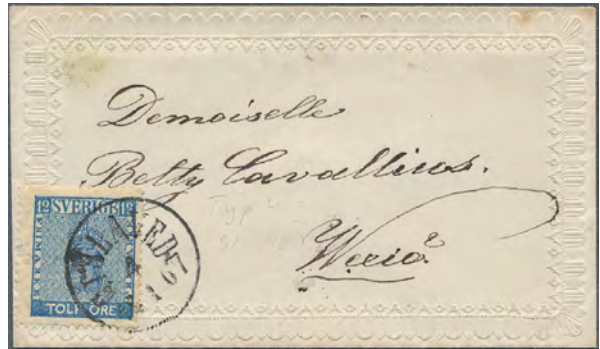 Demoiselle
Betty Cavallius.
Wexiö.
12 SVERIGE 12
TOLF ÖRE